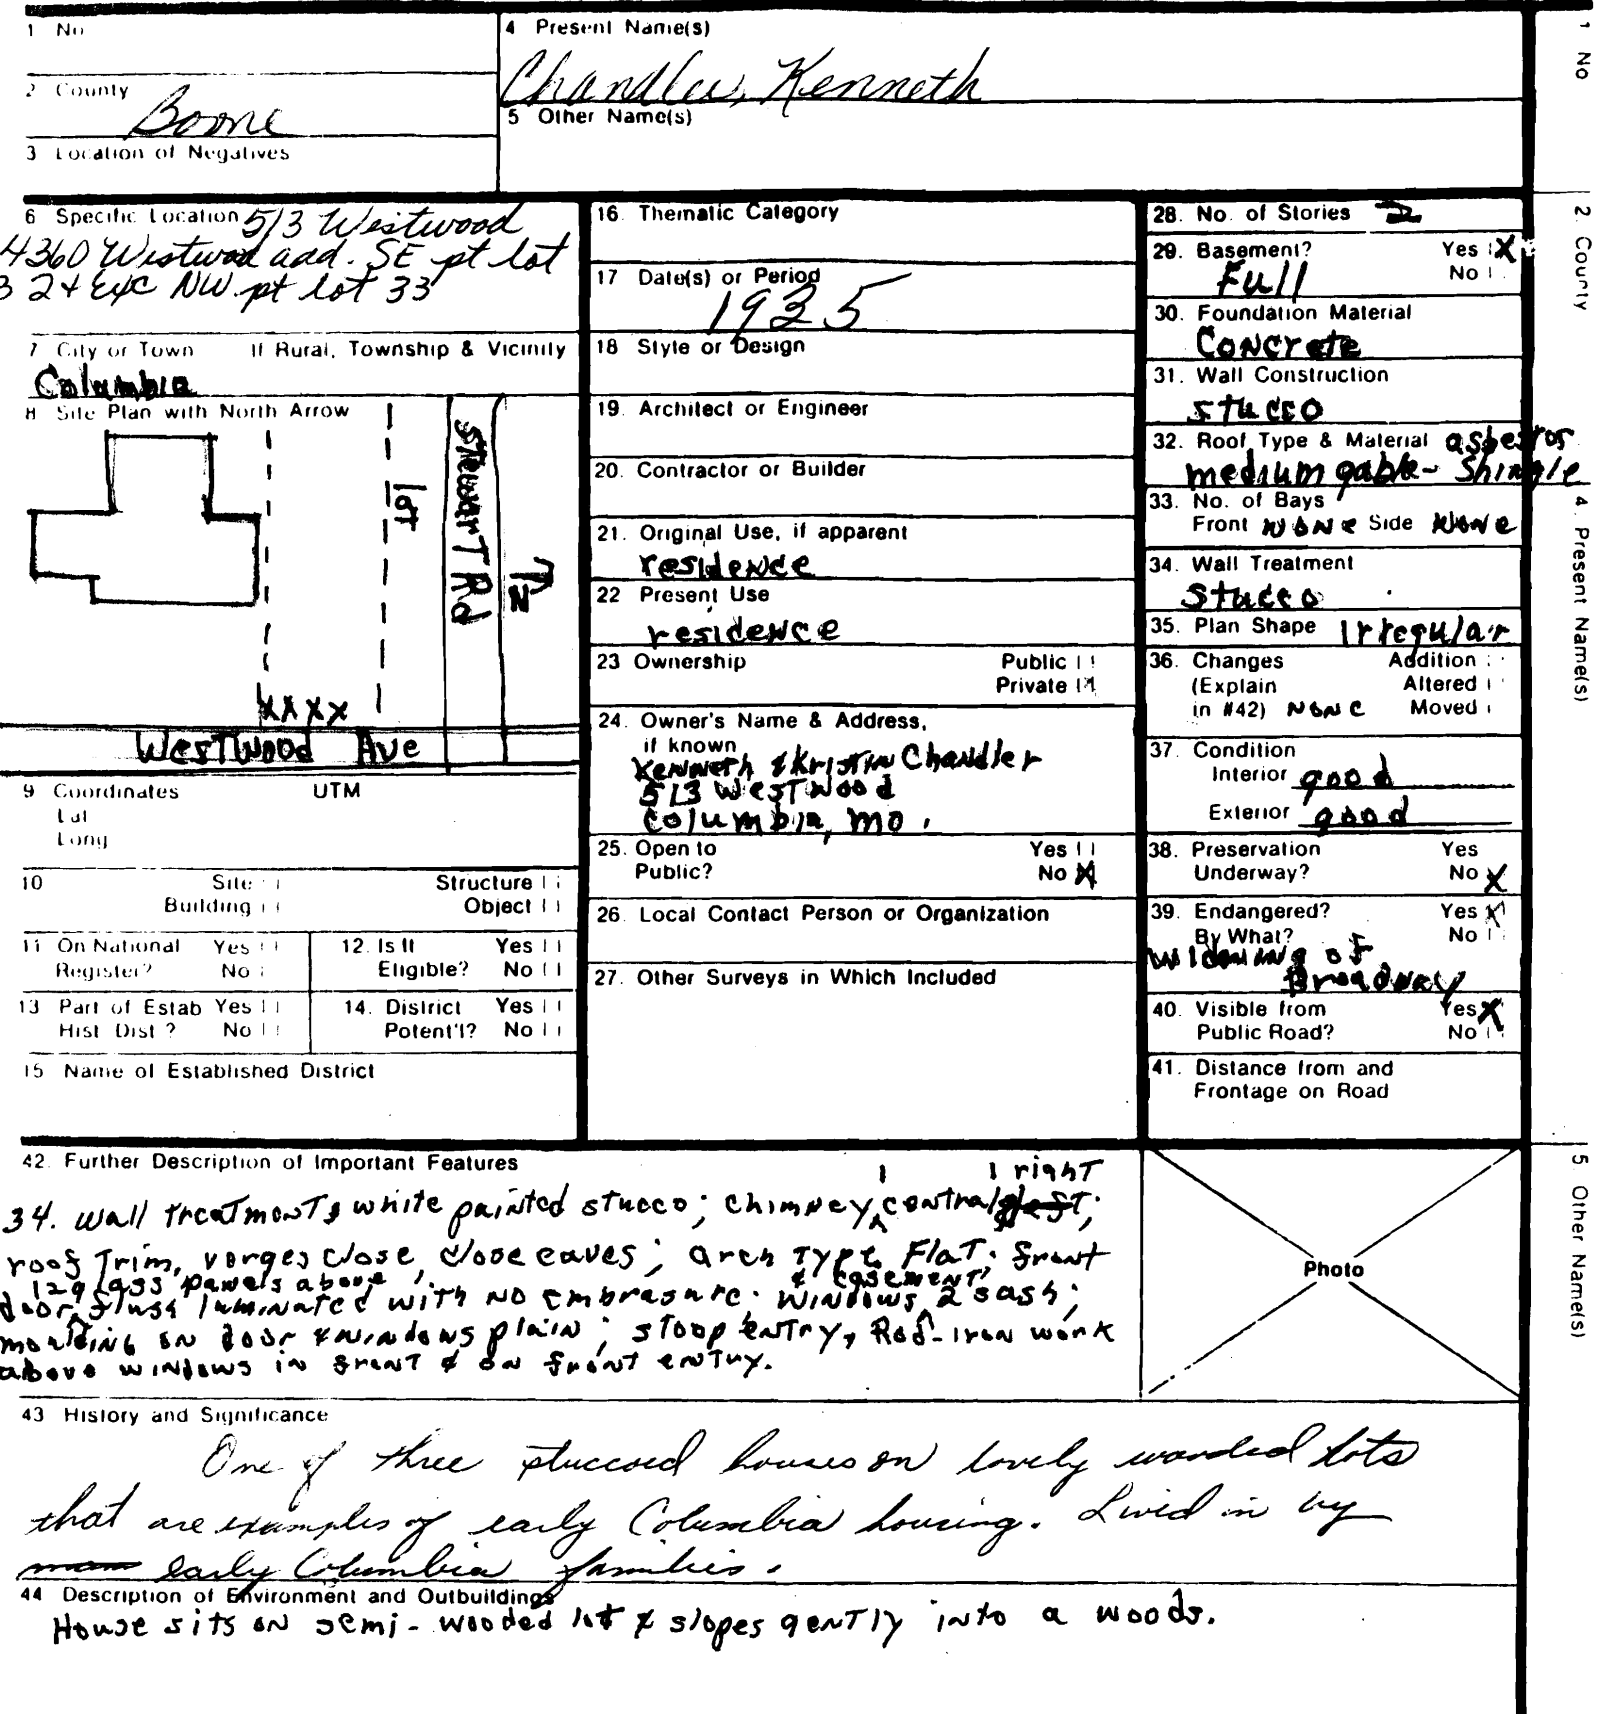 1 No
4 Present Name(s)
Chandler, Kenneth
2 County
Boone
5 Other Name(s)
3 Location of Negatives
6 Specific Location 513 Westwood
4360 Westwood add. SE pt lot
3 2 + Exc NW pt lot 33
7 City or Town If Rural, Township & Vicinity
Columbia
8 Site Plan with North Arrow
lot
Stewart Rd
N
XXXX
Westwood Ave
9 Coordinates UTM
Lat
Long
10 Site Structure
Building Object
11 On National Yes
Register? No
12. Is It Yes
Eligible? No
13 Part of Estab Yes
Hist Dist? No
14. District Yes
Potent'l? No
15 Name of Established District
16. Thematic Category
17 Date(s) or Period
1935
18 Style or Design
19. Architect or Engineer
20. Contractor or Builder
21. Original Use, if apparent
residence
22 Present Use
residence
23 Ownership Public
Private X
24. Owner's Name & Address,
if known
Kenneth & Kristin Chandler
513 Westwood
Columbia, Mo.
25. Open to Yes
Public? No X
26. Local Contact Person or Organization
27. Other Surveys in Which Included
28. No. of Stories 2
29. Basement? Yes X
Full No
30. Foundation Material
Concrete
31. Wall Construction
stucco
32. Roof Type & Material asbestos
medium gable - Shingle
33. No. of Bays
Front None Side None
34. Wall Treatment
Stucco
35. Plan Shape Irregular
36. Changes Addition
(Explain Altered
in #42) None Moved
37. Condition
Interior good
Exterior good
38. Preservation Yes
Underway? No X
39. Endangered? Yes X
By What? No
widening of
Broadway
40. Visible from Yes X
Public Road? No
41. Distance from and
Frontage on Road
42. Further Description of Important Features
1 1 right
34. Wall treatment, white painted stucco; chimney, central left;
roof trim, verges close, close eaves; arch type, Flat. front
12 glass panels above & casement,
door, flush laminated with no embrasure. windows 2 sash;
moulding on door & windows plain; stoop entry, Rod-iron work
above windows in front & on front entry.
Photo
43 History and Significance
One of three stuccoed houses on lovely wooded lots
that are examples of early Columbia housing. Lived in by
early Columbia families.
44 Description of Environment and Outbuildings
House sits on semi-wooded lot & slopes gently into a woods.
1 No
2. County
4. Present Name(s)
5. Other Name(s)